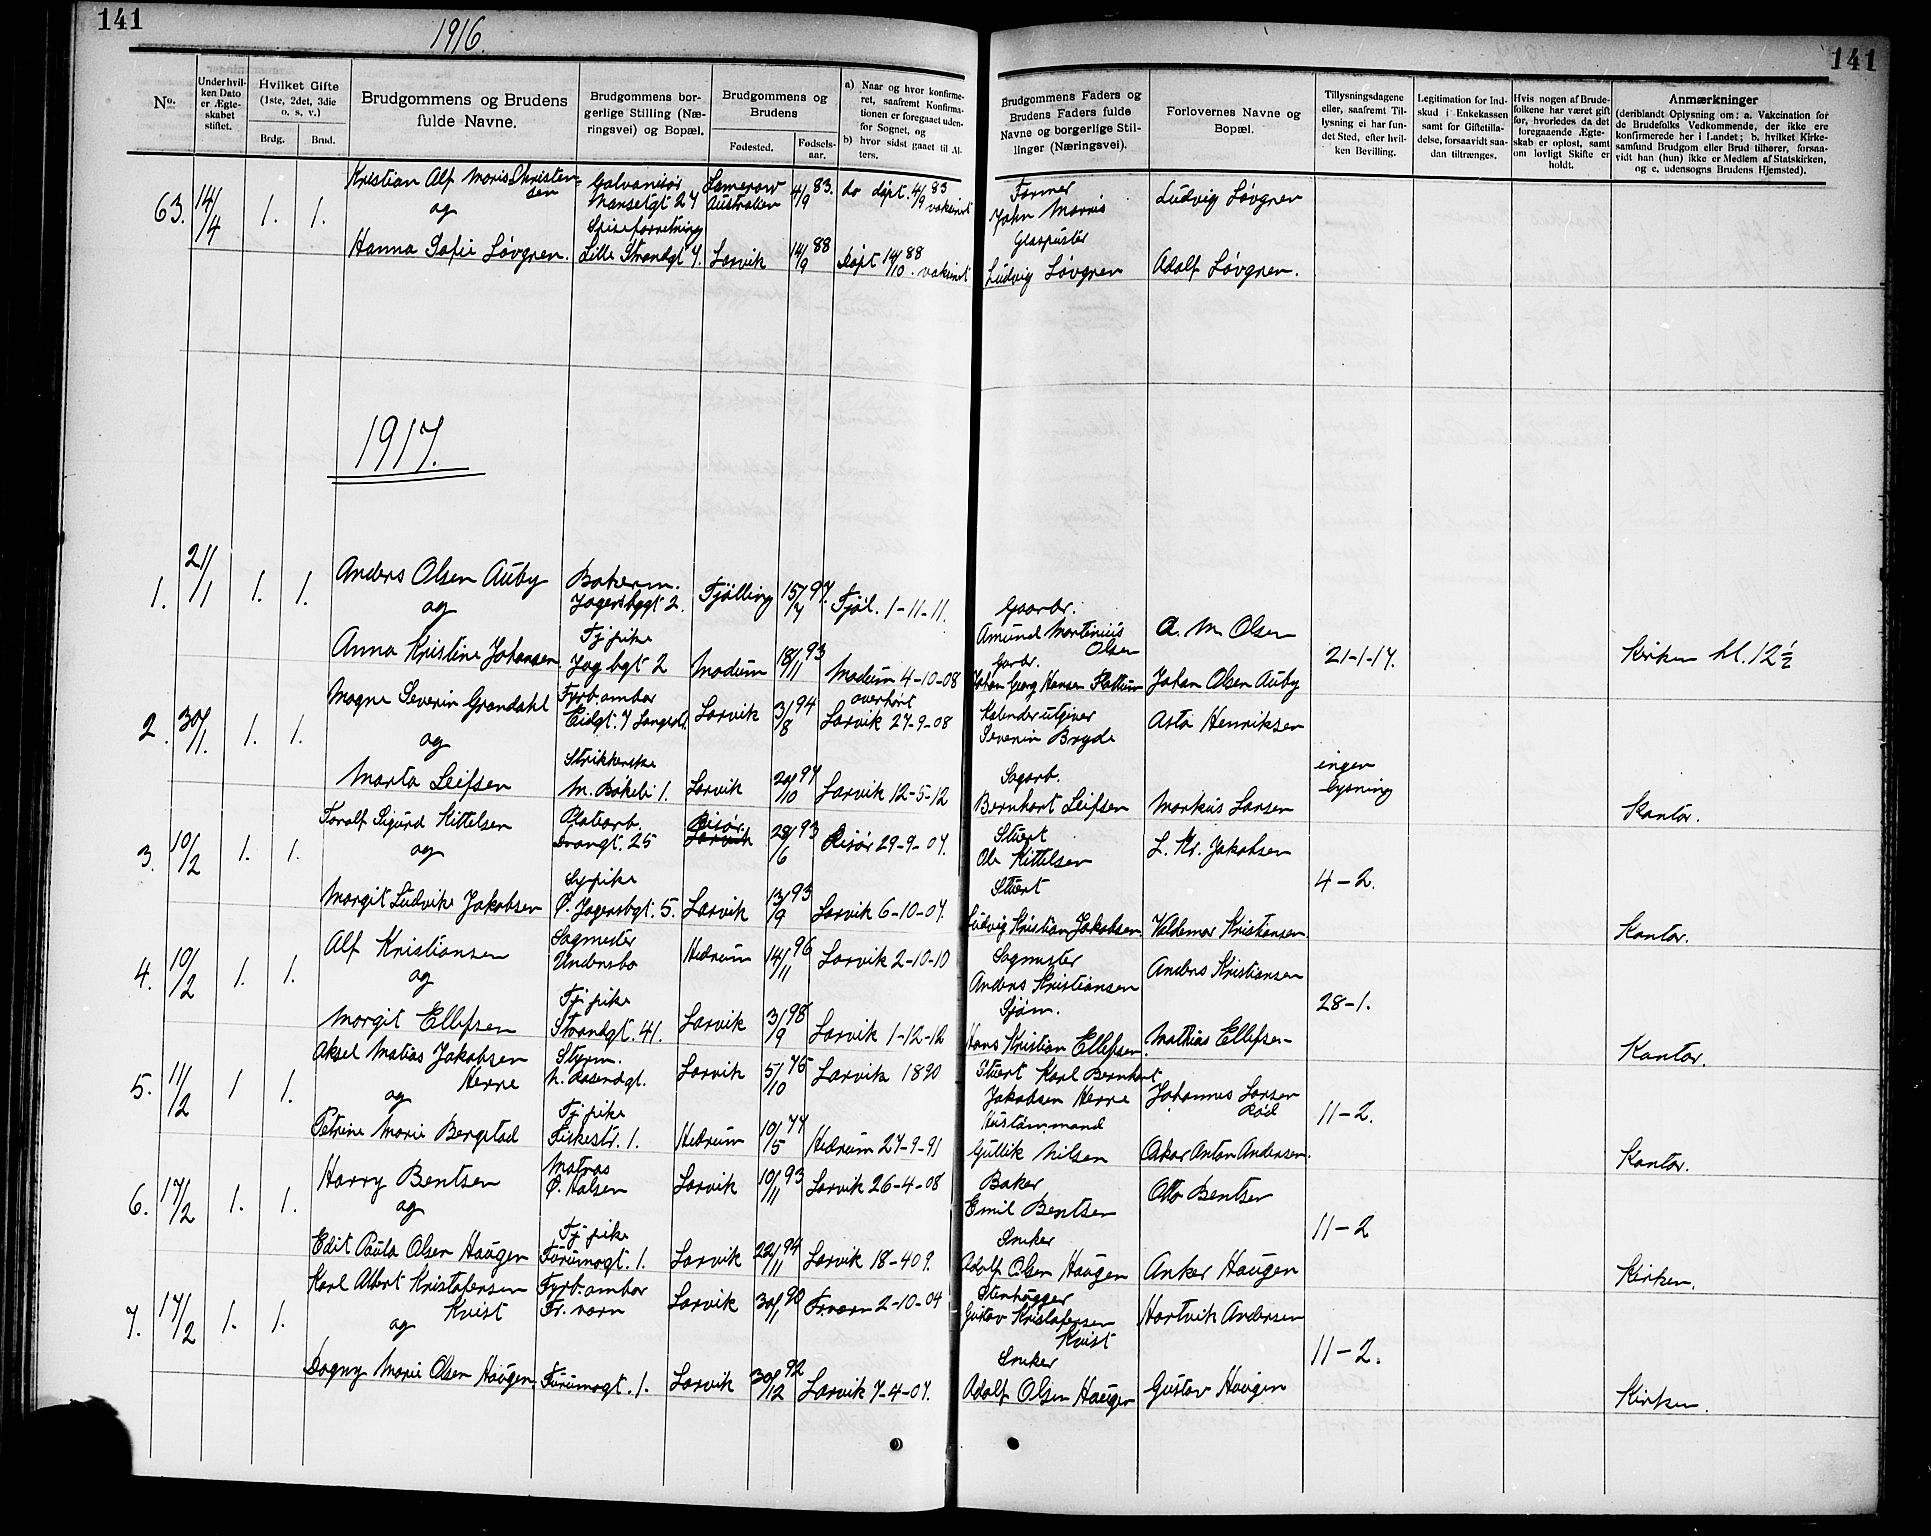 141
1916.
141
No.
Under hvilken Dato er Ægteskabet stiftet.
Hvilket Gifte (1ste, 2det, 3die o. s. v.)
Brdg.
Brud.
Brudgommens og Brudens fulde Navne.
Brudgommens borgerlige Stilling (Næringsvei) og Bopæl.
Brudgommens og Brudens
Fødested.
Fødselsaar.
a) Naar og hvor konfirmeret, saafremt Konfirmationen er foregaaet udenfor Sognet, og
b) hvor sidst gaaet til Alters.
Brudgommens Faders og Brudens Faders fulde Navne og borgerlige Stillinger (Næringsvei).
Forlovernes Navne og Bopæl.
Tillysningsdagene eller, saafremt Tillysning ei har fundet Sted, efter hvilken Bevilling.
Legitimation for Indskud i Enkekassen samt for Giftetilladelse, forsaavidt saadan tiltrænges.
Hvis nogen af Brudefolkene har været gift før, hvorledes da det foregaaende Ægteskab er opløst, samt om lovligt Skifte er holdt.
Anmærkninger
(deriblandt Oplysning om: a. Vakcination for de Brudefolks Vedkommende, der ikke ere konfirmerede her i Landet; b. hvilket Kirkesamfund Brudgom eller Brud tilhører, forsaavidt han (hun) ikke er Medlem af Statskirken, og c. udensogns Brudens Hjemsted).
63. 14/4 1. 1. Kristian Alf Moris Christensen Galvanisør Manselgt 24 Australien 4/9 83. døpt. 4/9 83 vaksinert Farmer John Morris Ludvig Løvgren
og
Hanna Sofie Løvgren. Spiseforretning Lille Strandgt 4. Larvik 14/9 88 døpt 14/10 88. vaksinert Glaspuster Ludvig Løvgren Adolf Løvgren.
1917.
1. 21/1 1. 1. Anders Olsen Auby Bakerm. Jegersbgt 2. Tjølling 15/4 97. Tjøl. 1-11-11. Gaarbr. Amund Martinius Olsen A. M Olsen
og
Anna Kristine Johansen Tj pike Jeg bgt 2 Modum 18/11 93 Modum 4-10-08 Garbr. Johan Georg Hansen Johan Olsen Auby 21-1-17. Kirken kl. 12½
2. 30/1. 1. 1. Magne Severin Grandahl Fyrb. ombor Eidgt. 7 Langest. Larvik 3/8 94 overhørt Larvik 27-9-08 Kalenderutgiver Severin Bryde Asta Henriksen
og
Marta Leifsen Strikkerske M. Bøkeli 1. Larvik 20/10 97 Larvik 12-5-12 Sagarb. Bernhart Leifsen Markus Larsen ingen lysning Kontor.
3. 10/2 1. 1. Toralf Sigurd Kittelsen Platearb. Drongt. 25 Risør. Larvik 28/6 93 Risør 29-9-07. Stuert Ole Kittelsen L. Kr. Jakobsen
og
Margit Ludvike Jakobsen Sypike Ø. Jegersbgt. 5. Larvik 13/9 93 Larvik 6-10-07. Stuert Ludvig Kristian Jakobsen Valdemar Kristiansen. 4-2. Kontor.
4. 10/2 1. 1. Alf Kristiansen Sagmester Undersbo Hedrum 14/11 96 Larvik 2-10-10 Sagmester Anders Kristiansen Anders Kristiansen
og
Margit Ellefsen Tj pike Strandgt. 41. Larvik 3/9 98 Larvik 1-12-12 Sjøm. Hans Kristian Ellefsen Mathias Ellefsen 28-1. Kontor.
5. 11/2 1 1. Aksel Matias Jakobsen Herre Styrm. N. Rosendgt. Larvik 5/10 75 Larvik 1890 Stuert Karl Bernhart Jakobsen Herre Johannes Larsen Rød
og
Petrine Marie Bergstad Tj pike Fiskestr. 1. Hedrum 10/5 77 Hedrum 27-9-91 Hustømmand Gullik Nilsen Oskar Anton Andersen. 11-2. Kontor.
6. 17/2 1. 1. Harry Bentsen Matros Ø. Halsen Larvik 10/11 93 Larvik 26-4-08 Baker Emil Bentsen Otto Bentsen
og
Edit Paula Olsen Haugen Tj pike Furumogt. 1. Larvik 22/11 94 Larvik 18-409. Sneker Adolf Olsen Haugen Anker Haugen 11-2 Kirken.
7. 17/2 1. 1. Karl Albert Kristofersen Kvist Fyrb. ombor Fr. værn Larvik 30/11 90 Fr.værn 2-10-04 Stenhugger Gustav Kristofersen Kvist Hartvik Andersen
og
Dagny Marie Olsen Haugen Furumogt. 1. Larvik 30/12 92 Larvik 7-4-07. Sneker Adolf Olsen Haugen Gustav Haugen 11-2. Kirken.